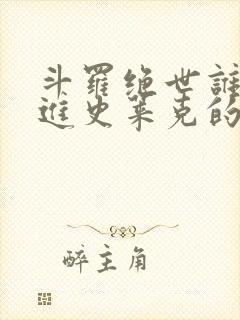 斗羅绝世誰
進史莱克的
醉主角